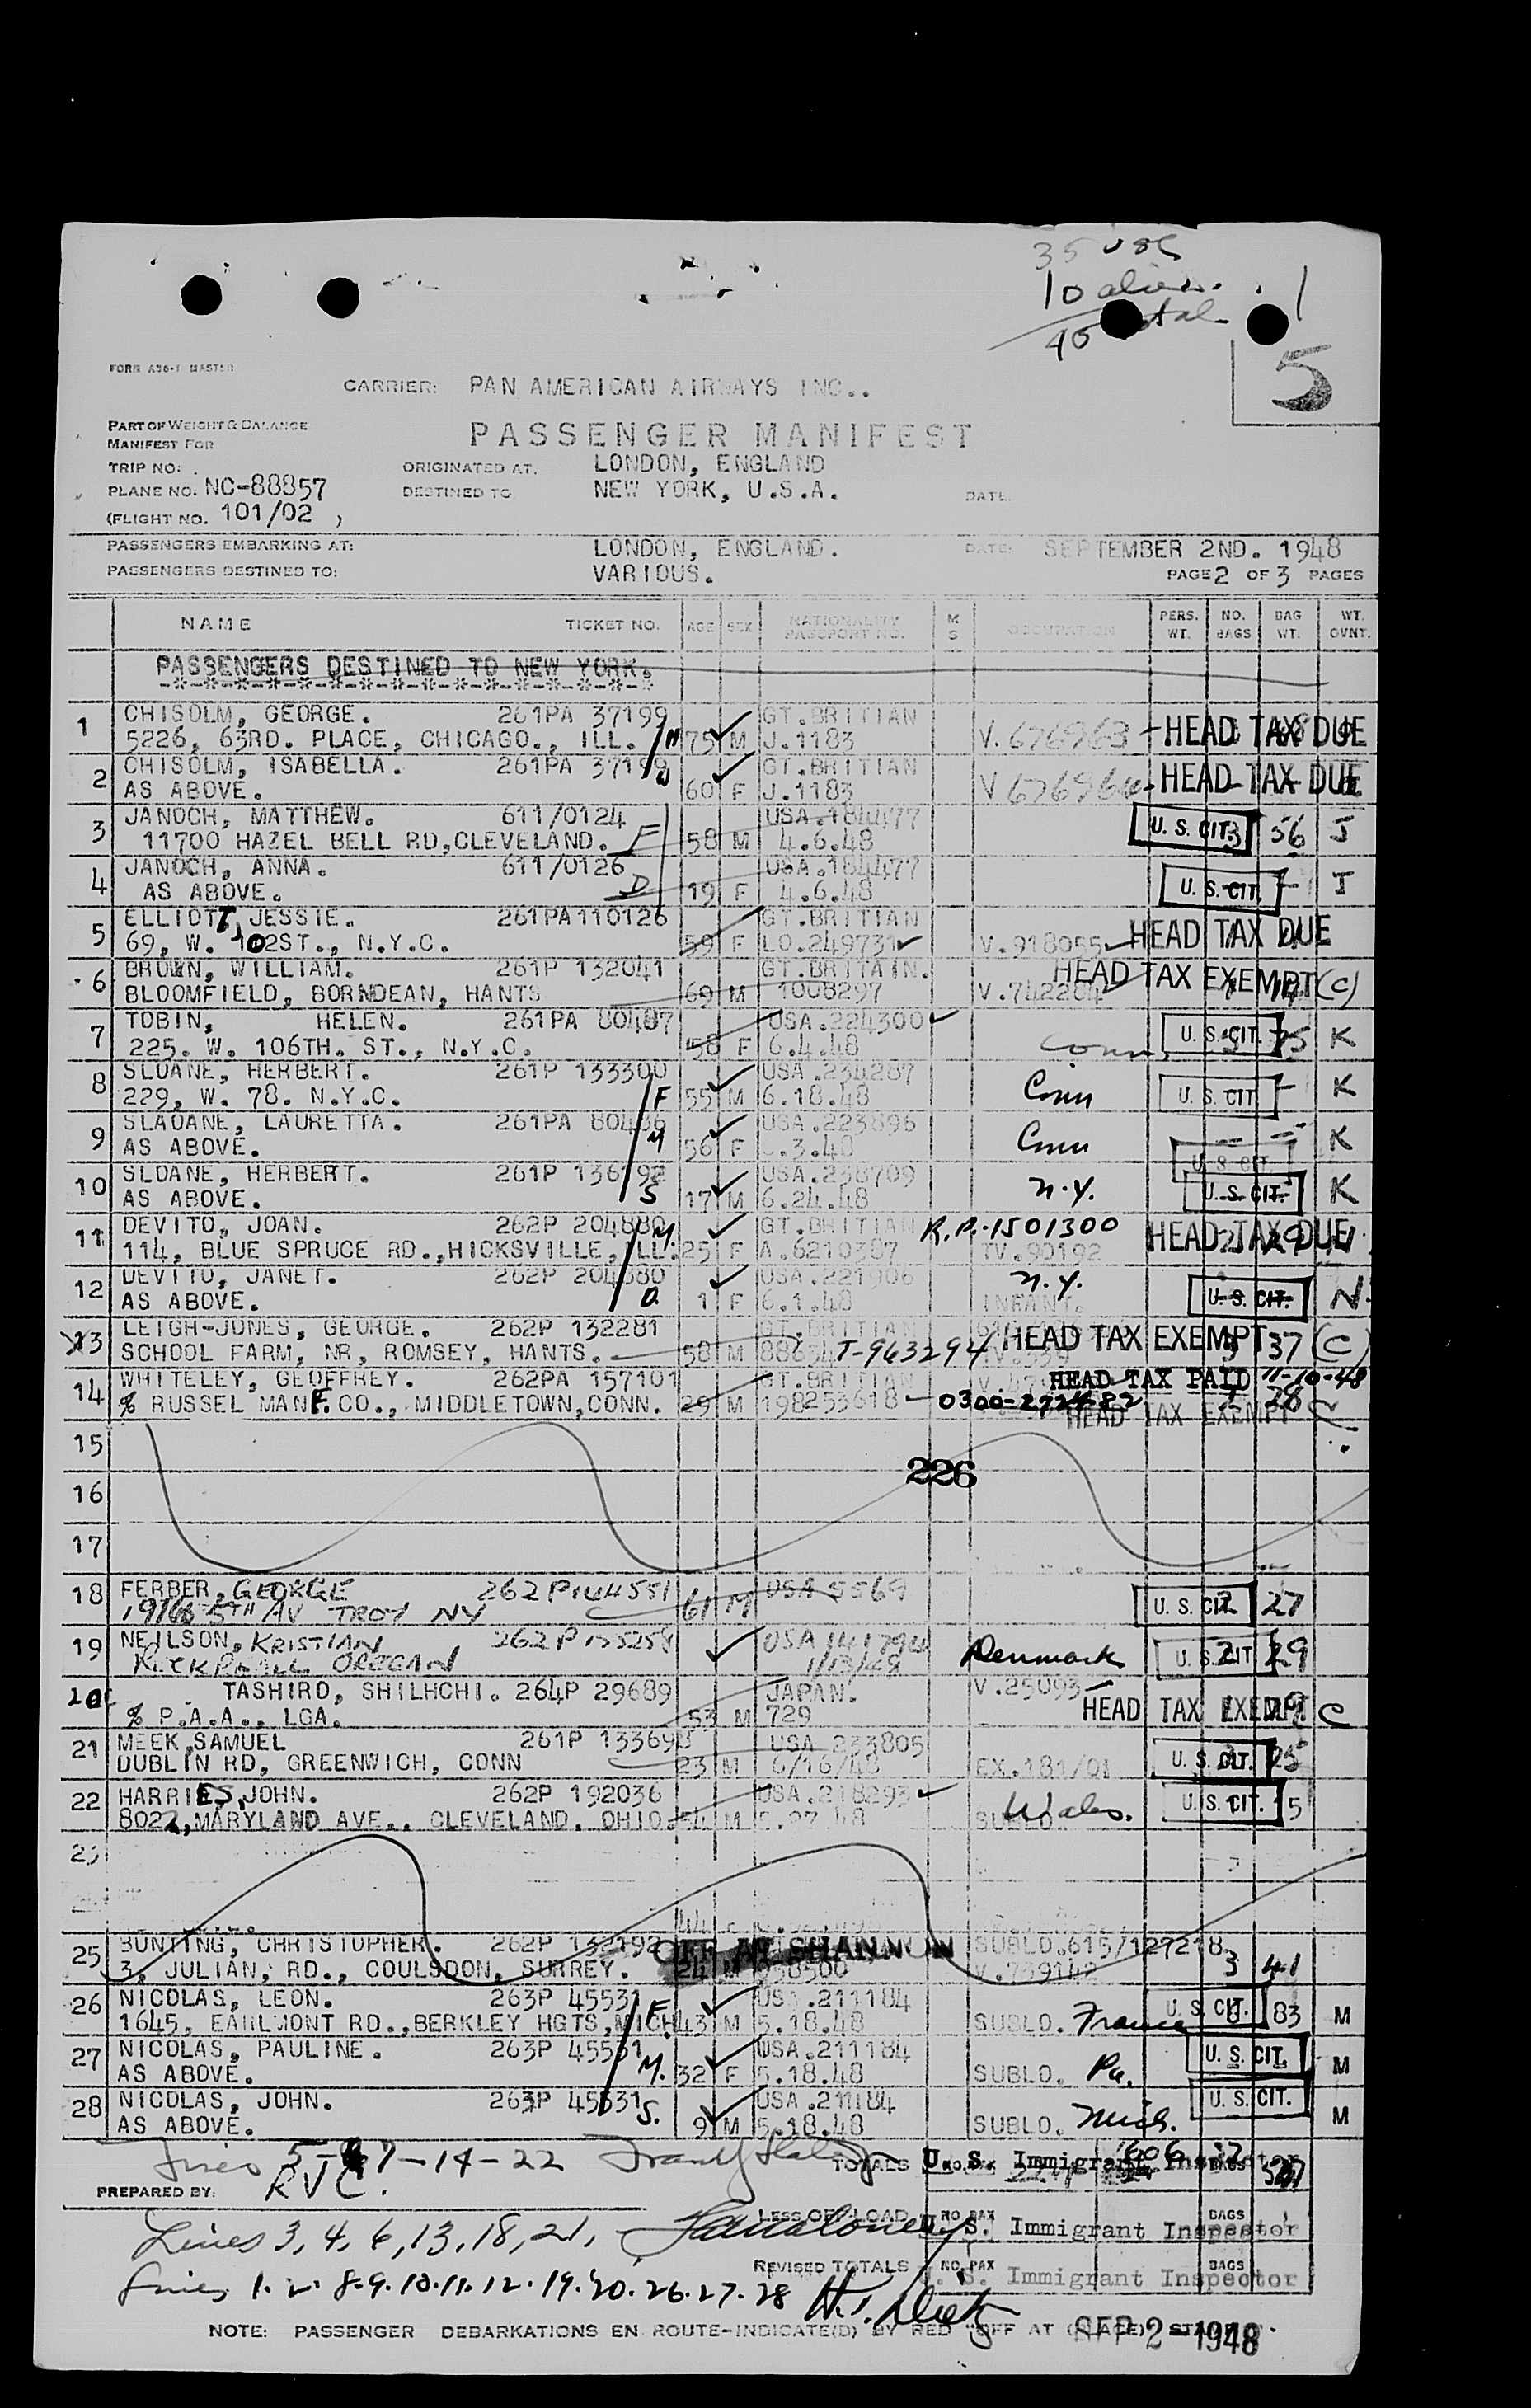 35 USC
10 aliens.
45 total
5
FORM A36-1 MASTER
CARRIER: PAN AMERICAN AIRWAYS INC..
PART OF WEIGHT & BALANCE
MANIFEST FOR
PASSENGER MANIFEST
TRIP NO: ORIGINATED AT. LONDON, ENGLAND
PLANE NO. NC-88857 DESTINED TO. NEW YORK, U.S.A. DATE
(FLIGHT NO. 101/02 )
PASSENGERS EMBARKING AT: LONDON, ENGLAND. DATE: SEPTEMBER 2ND. 1948
PASSENGERS DESTINED TO: VARIOUS. PAGE 2 OF 3 PAGES
NAME TICKET NO. AGE SEX NATIONALITY PASSPORT NO. M S OCCUPATION PERS. WT. NO. BAGS BAG WT. WT. OVNT.
PASSENGERS DESTINED TO NEW YORK.
-*-*-*-*-*-*-*-*-*-*-*-*-*-*-*-*-
1 CHISOLM, GEORGE. 261PA 37199 GT.BRITIAN
5226, 63RD. PLACE, CHICAGO., ILL. H 75 M J.1183 V.676963 HEAD TAX DUE
2 CHISOLM, ISABELLA. 261PA 37199 GT.BRITIAN
AS ABOVE. W 60 F J.1183 V676964 HEAD TAX DUE
3 JANOCH, MATTHEW. 611/0124 USA.184477
11700 HAZEL BELL RD,CLEVELAND. F 58 M 4.6.48 U. S. CIT. 3 56 J
4 JANOCH, ANNA. 611/0126 USA.184477
AS ABOVE. D 19 F 4.6.48 U. S. CIT. - J
5 ELLIOTT, JESSIE. 261PA110126 GT.BRITIAN
69, W. 102ST., N.Y.C. 59 F LO.249731 V.918055 HEAD TAX DUE
6 BROWN, WILLIAM. 261P 132041 GT.BRITAIN. HEAD TAX EXEMPT (C)
BLOOMFIELD, BORNDEAN, HANTS 69 M 1008297 V.742204
7 TOBIN, HELEN. 261PA 80487 USA.224300
225. W. 106TH. ST., N.Y.C. 58 F 6.4.48 Conn. U. S. CIT. K
8 SLOANE, HERBERT. 261P 133300 USA.234287
229, W. 78. N.Y.C. F 55 M 6.18.48 Conn U. S. CIT. - K
9 SLAOANE, LAURETTA. 261PA 80486 USA.223896
AS ABOVE. M 56 F .3.48 Conn U S CIT. - - K
10 SLOANE, HERBERT. 261P 136192 USA.238709
AS ABOVE. S 17 M 6.24.48 N.Y. U. S. CIT. K
11 DEVITO, JOAN. 262P 204880 M. GT.BRITIAN R.P.-1501300
114, BLUE SPRUCE RD.,HICKSVILLE,ILL. 25 F A.6210587 TV.90192 HEAD TAX DUE
12 DEVITO, JANET. 262P 204880 USA.221906 N.Y.
AS ABOVE. D. 1 F 6.1.48 INFANT. U. S. CIT. N.
13 LEIGH-JONES, GEORGE. 262P 132281 GT.BRITIAN
SCHOOL FARM, NR, ROMSEY, HANTS. 58 M T-963294 HEAD TAX EXEMPT 3 37 (C)
14 WHITELEY, GEOFFREY. 262PA 157101 GT.BRITIAN HEAD TAX PAID 11-10-48
% RUSSEL MANF.CO., MIDDLETOWN,CONN. 29 M 198253618 HEAD TAX EXEMPT C
15
226
16
17
18 FERBER, GEORGE 262P144551 61 M USA 5569
5TH AV TROY NY U. S. CIT. 2 27
19 NEILSON, KRISTIAN
OREGAN 1/13/48 Denmark U. S. CIT 2 29
20 TASHIRO, SHILHCHI. 264P 29689 JAPAN. V.25093
% P.A.A., LGA. 53 M 729 HEAD TAX EXEMPT C
21 MEEK,SAMUEL 261P 133698 USA 233805
DUBLIN RD, GREENWICH, CONN 23 M 6/16/48 EX.181/01 U. S. CIT. 25
22 HARRIES,JOHN. 262P 192036 USA.218293
8022,MARYLAND AVE., CLEVELAND. OHIO. 54 M 5.27.48 SUBLO. Wales. U. S. CIT. 15
23
25 BUNTING, CHRISTOPHER. 262P 132192 OFF AT SHANNON SUBLO.615/127218
3, JULIAN, RD., COULSDON, SURREY. 24 M 958500 V.739142 3 41
26 NICOLAS, LEON. 263P 45531 F. USA.211184
1645, EARLMONT RD.,BERKLEY HGTS,MICH 43 M 5.18.48 SUBLO. France U. S. CIT. 83 M
27 NICOLAS, PAULINE. 263P 45531 USA.211184
AS ABOVE. M. 32 F 5.18.48 SUBLO. Pa. U. S. CIT. M
28 NICOLAS, JOHN. 263P 45531 USA.211184
AS ABOVE. S. 9 M 5.18.48 SUBLO. Mich. U. S. CIT. M
Lines 5-7-14-22 TOTALS U. S. Immigrant Inspector
PREPARED BY: RVC.
LESS OFF LOAD NO. PAX BAGS
Lines 3, 4, 6, 13, 18, 21, U. S. Immigrant Inspector
REVISED TOTALS NO. PAX BAGS
Lines 1. 2. 8.9.10.11.12.19.20.26.27.28 U. S. Immigrant Inspector
NOTE: PASSENGER DEBARKATIONS EN ROUTE-INDICATE(D) BY RED "OFF AT (PLACE)" STAMP.
SEP 2 - 1948